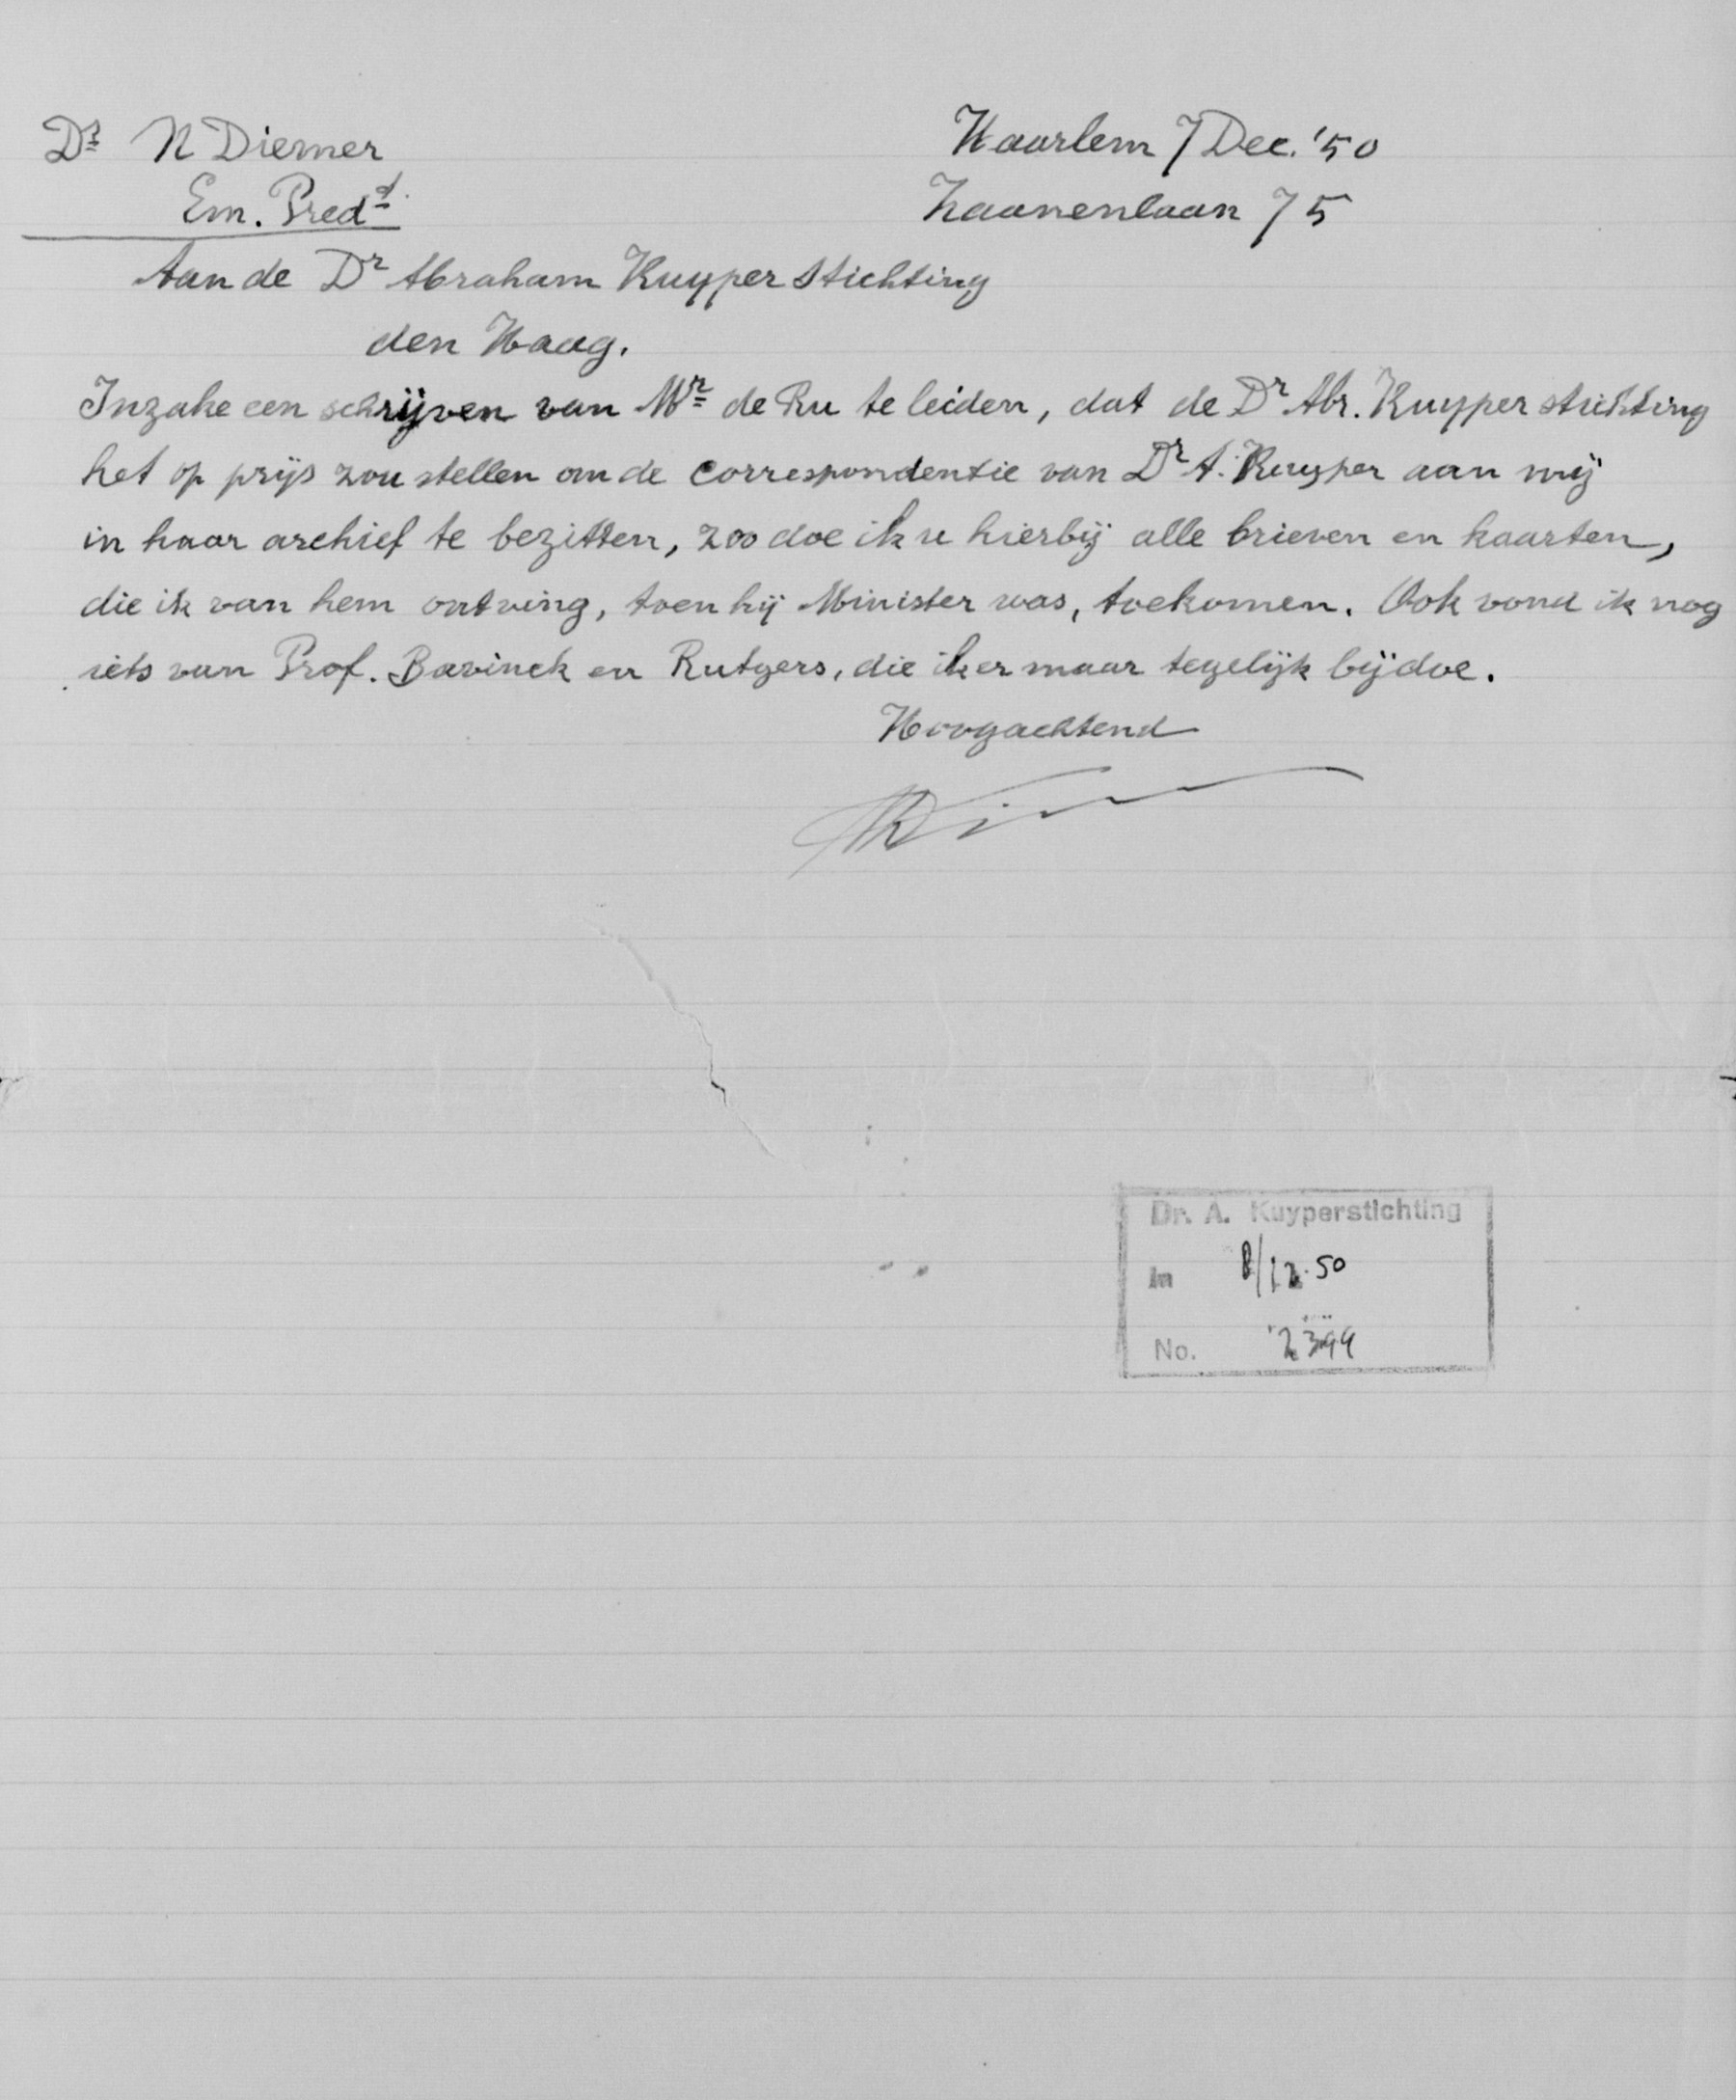 Dr N Diemer
Em. Predt.
Haarlem 7 Dec. '50
Zaanenlaan 75
Aan de Dr Abraham Kuyper Stichting
den Haag.
Inzake een schrijven van Mr de Ru te leiden, dat de Dr Abr. Kuyper stichting
het op prijs zou stellen om de correspondentie van Dr A. Kuyper aan mij
in haar archief te bezitten, zoo doe ik u hierbij alle brieven en kaarten,
die ik van hem ontving, toen hij Minister was, toekomen. Ook vond ik nog
iets van Prof. Bavinck en Rutgers, die ik er maar tegelijk bijdoe.
Hoogachtend
Dr. A. Kuyperstichting
In 8/12.50
No. 2399